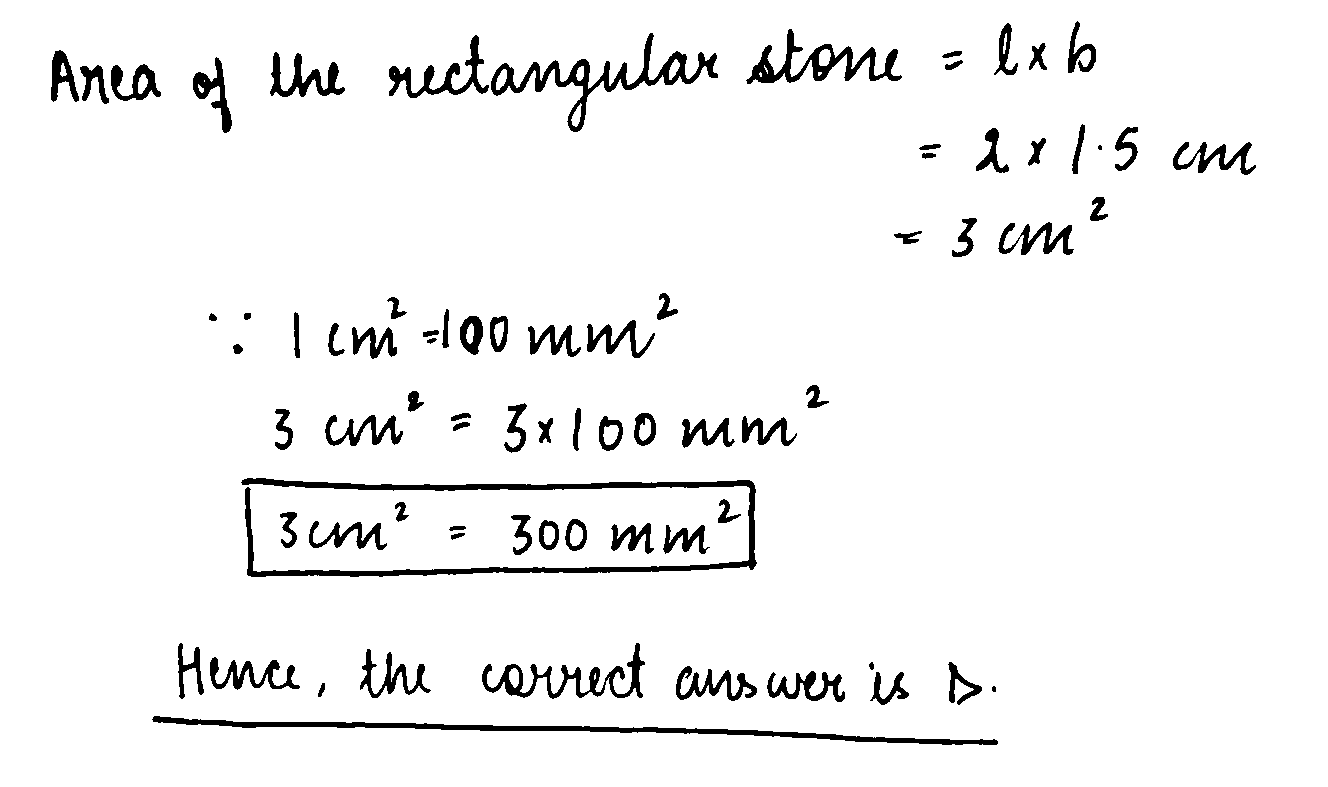 Area of the rectangular stone = l x b
= 2 x 1.5 cm
= 3 cm²
∵ 1 cm² = 100 mm²
3 cm² = 3 x 100 mm²
3 cm² = 300 mm²
Hence, the correct answer is D.